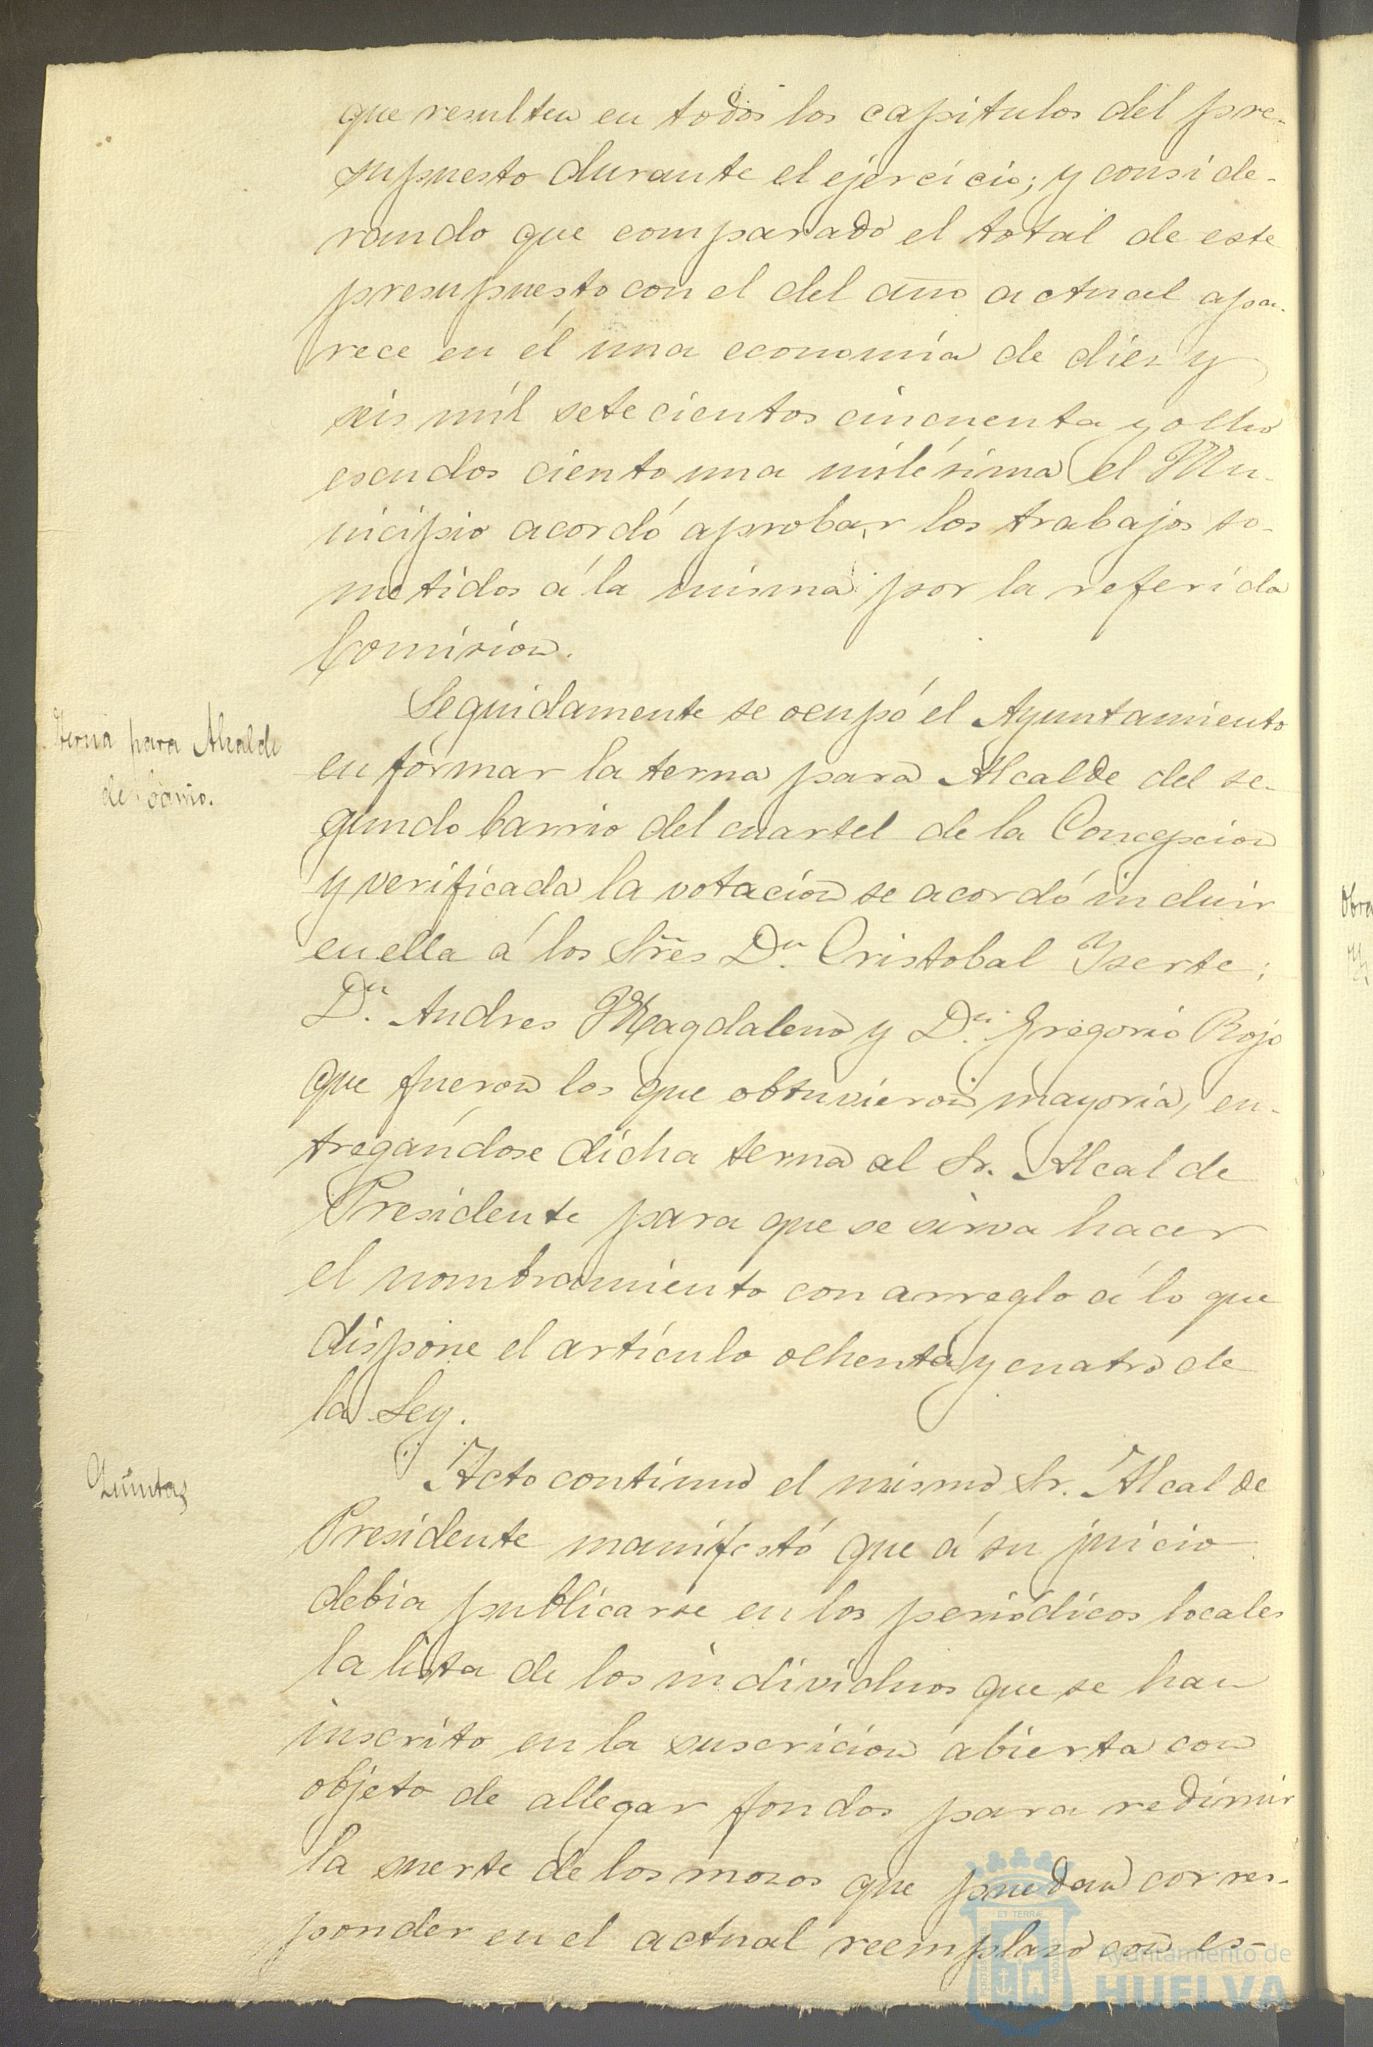 que resulten en todos los capitulos del pre-
supuesto durante el ejercicio; y conside-
rando que comparado el total de este
presupuesto con el del año actual apa-
rece en él una economía de diez y
seis mil setecientos cincuenta y ocho
escudos ciento una milésima el Mu-
nicipio acordó aprobar los trabajos so-
metidos á la misma por la referida
Comision.
Terna para Alcalde
de barrio.
Seguidamente se ocupó el Ayuntamiento
en formar la terna para Alcalde del se-
gundo barrio del cuartel de la Concepcion
y verificada la votacion se acordó incluir
en ella á los Sres Dn. Cristobal Yserte;
Dn. Andres Magdaleno y Dn. Gregorio Rojo
que fueron los que obtuvieron mayoria, en-
tregándose dicha terna al Sr. Alcalde
Presidente para que se sirva hacer
el nombramiento con arreglo á lo que
dispone el artículo ochenta y cuatro de
la Ley.
Quintas
Acto continuo el mismo Sr. Alcalde
Presidente manifestó que á su juicio
debia publicarse en los periódicos locales
la lista de los individuos que se han
inscrito en la suscricion abierta con
objeto de allegar fondos para redimir
la suerte de los mozos que puedan corres-
ponder en el actual reemplazo con es-
Obra
Ayuntamiento de
HUELVA